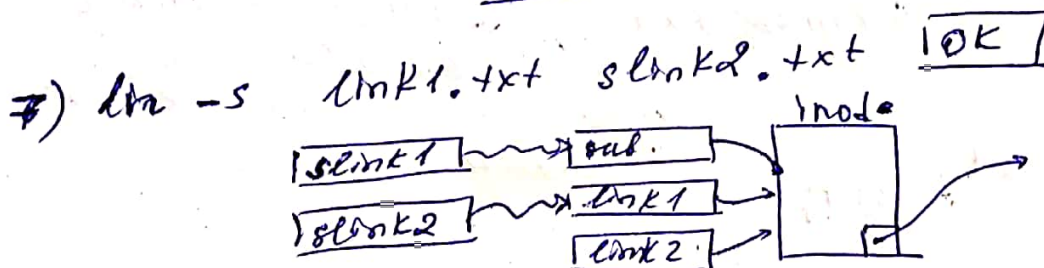 7) ln -s link1.txt slink2.txt OK
inode
slink1 sub.
slink2 link1
link2